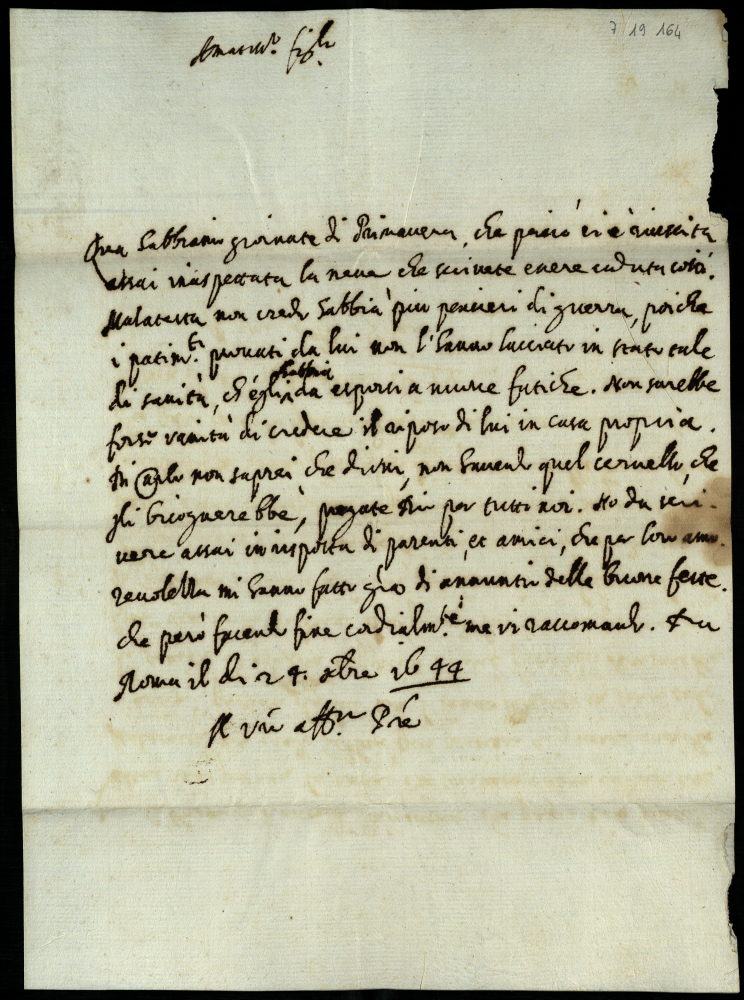 7 19 164
Amatiss.º figl.º
Qua habbiamo giornate di Primavera, che perciò ci è riuscita
assai inaspettata la neve che scrivete essere caduta costì.
Malatesta non credo habbia più pensieri di guerra, poiche
i patim.ti provati da lui non l'hanno lasciato in stato tale
di sanità, ch'egli habbia da esporsi a nuove fatiche. Non sarebbe
forse vanità di credere il riposo di lui in casa propria.
Di Carlo non saprei che dirvi, non havendo quel cervello, che
gli bisognerebbe, pregate Dio per tutti noi. Ho da scri-
vere assai in risposta di parenti, et amici, che per loro amo-
revolezza mi hanno fatto gra di annuntii delle buone feste.
che però facendo fine cordialm.te me vi raccomando. Da
Roma il di 24. Xbre 1644
Il vrõ aff.mo Prẽ